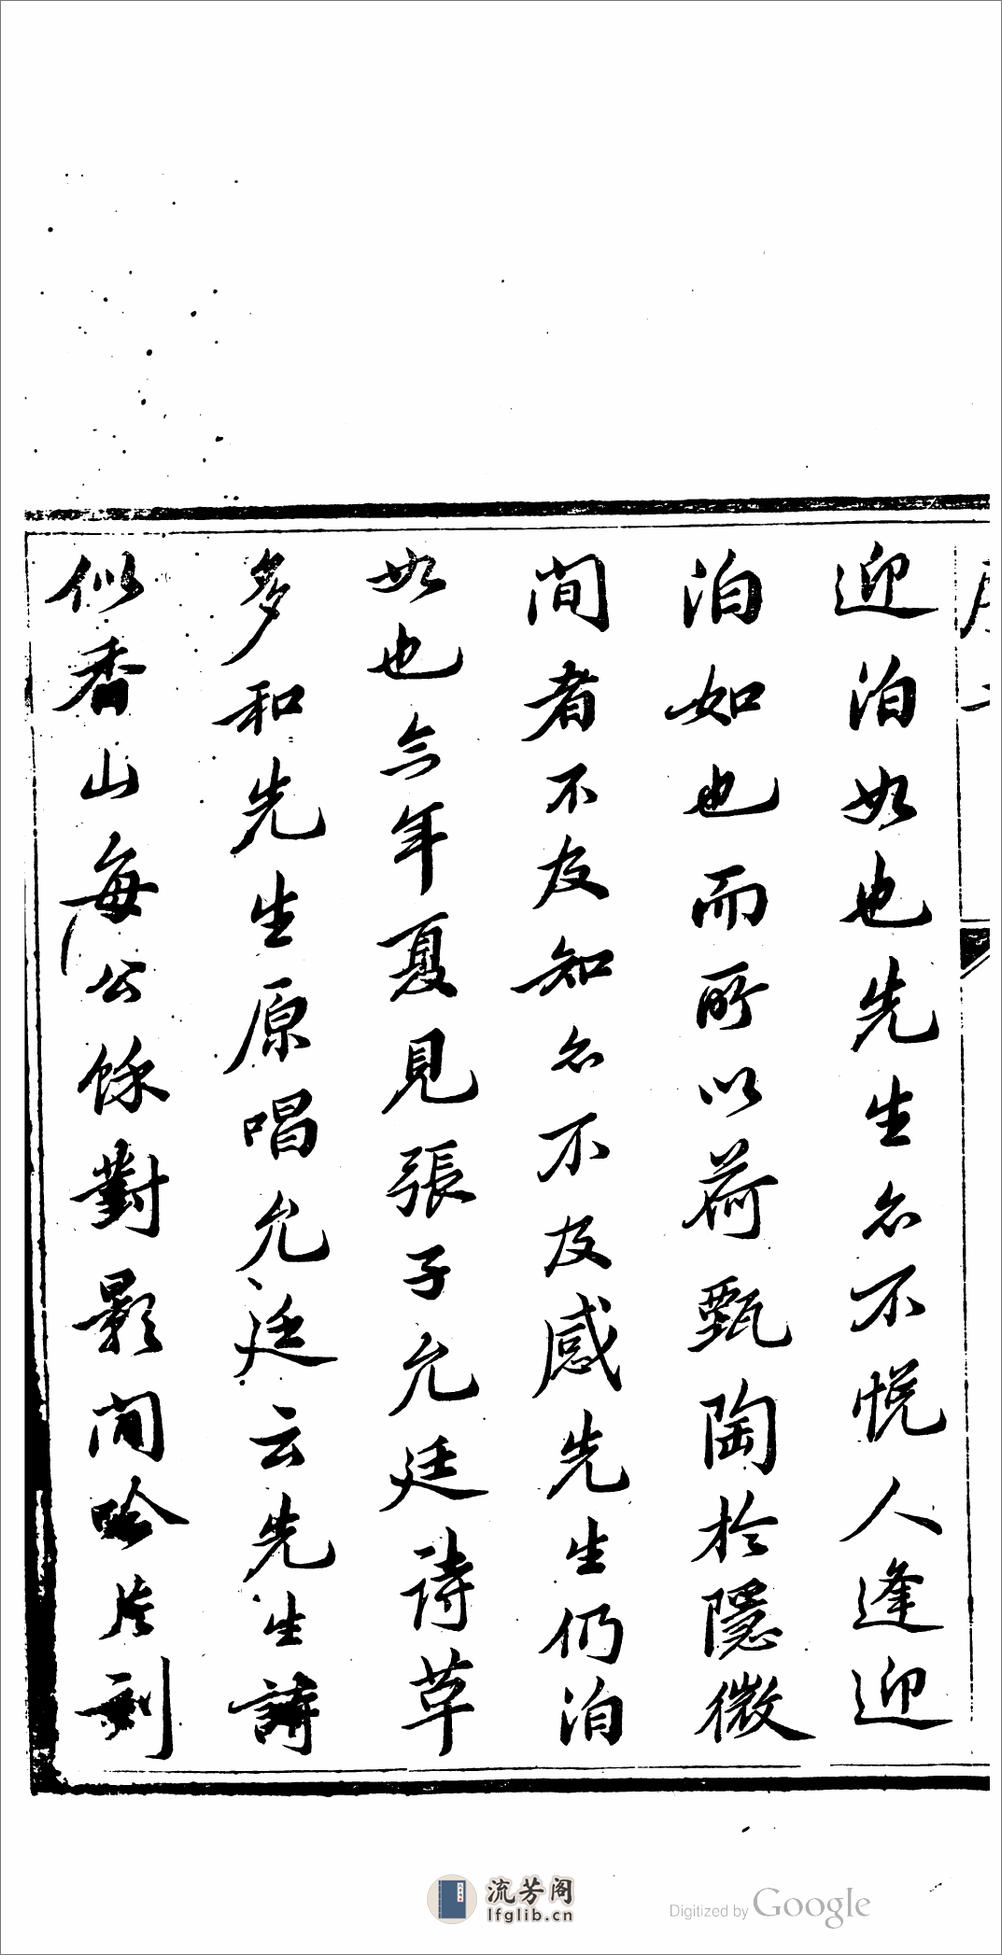 迎泊如也先生亦不悅人逢迎
泊如也而所以荷甄陶於隱微
間者不及知亦不及感先生仍泊
如也今年夏見張子允廷詩草
多和先生原唱允廷云先生詩
似香山每公餘對影間吟片刻
流芳阁
lfglib.cn
Digitized by Google